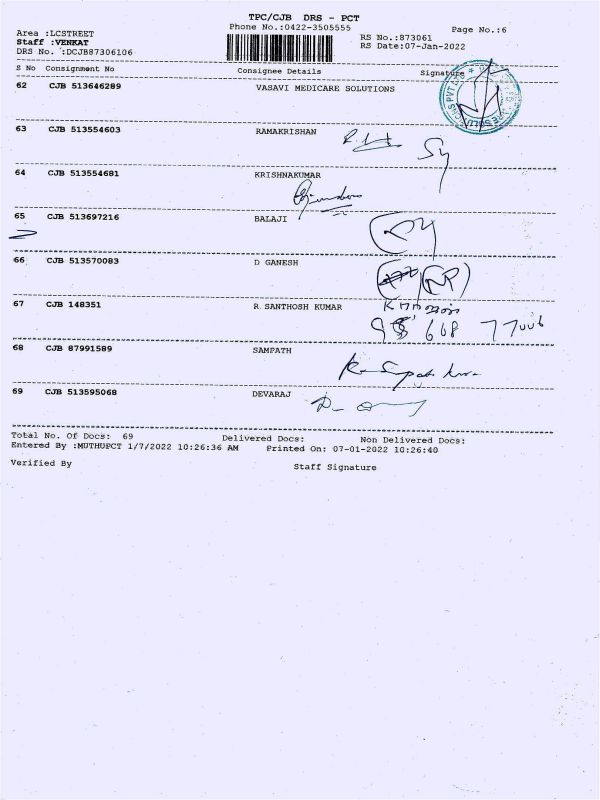 TPC/CJB DRS - PCT
Phone No.:0422-3505555
Page No.:6
Area :LCSTREET
Staff :VENKAT
DRS No. :DCJB87306106
RS No.:873061
RS Date:07-Jan-2022
S No Consignment No Consignee Details Signature
62 CJB 513646289 VASAVI MEDICARE SOLUTIONS
63 CJB 513554603 RAMAKRISHAN
64 CJB 513554681 KRISHNAKUMAR
65 CJB 513697216 BALAJI
66 CJB 513570083 D GANESH
67 CJB 148351 R.SANTHOSH KUMAR
68 CJB 87991589 SAMPATH
69 CJB 513595068 DEVARAJ
Total No. Of Docs: 69 Delivered Docs: Non Delivered Docs:
Entered By :MUTHUPCT 1/7/2022 10:26:36 AM Printed On: 07-01-2022 10:26:40
Verified By Staff Signature